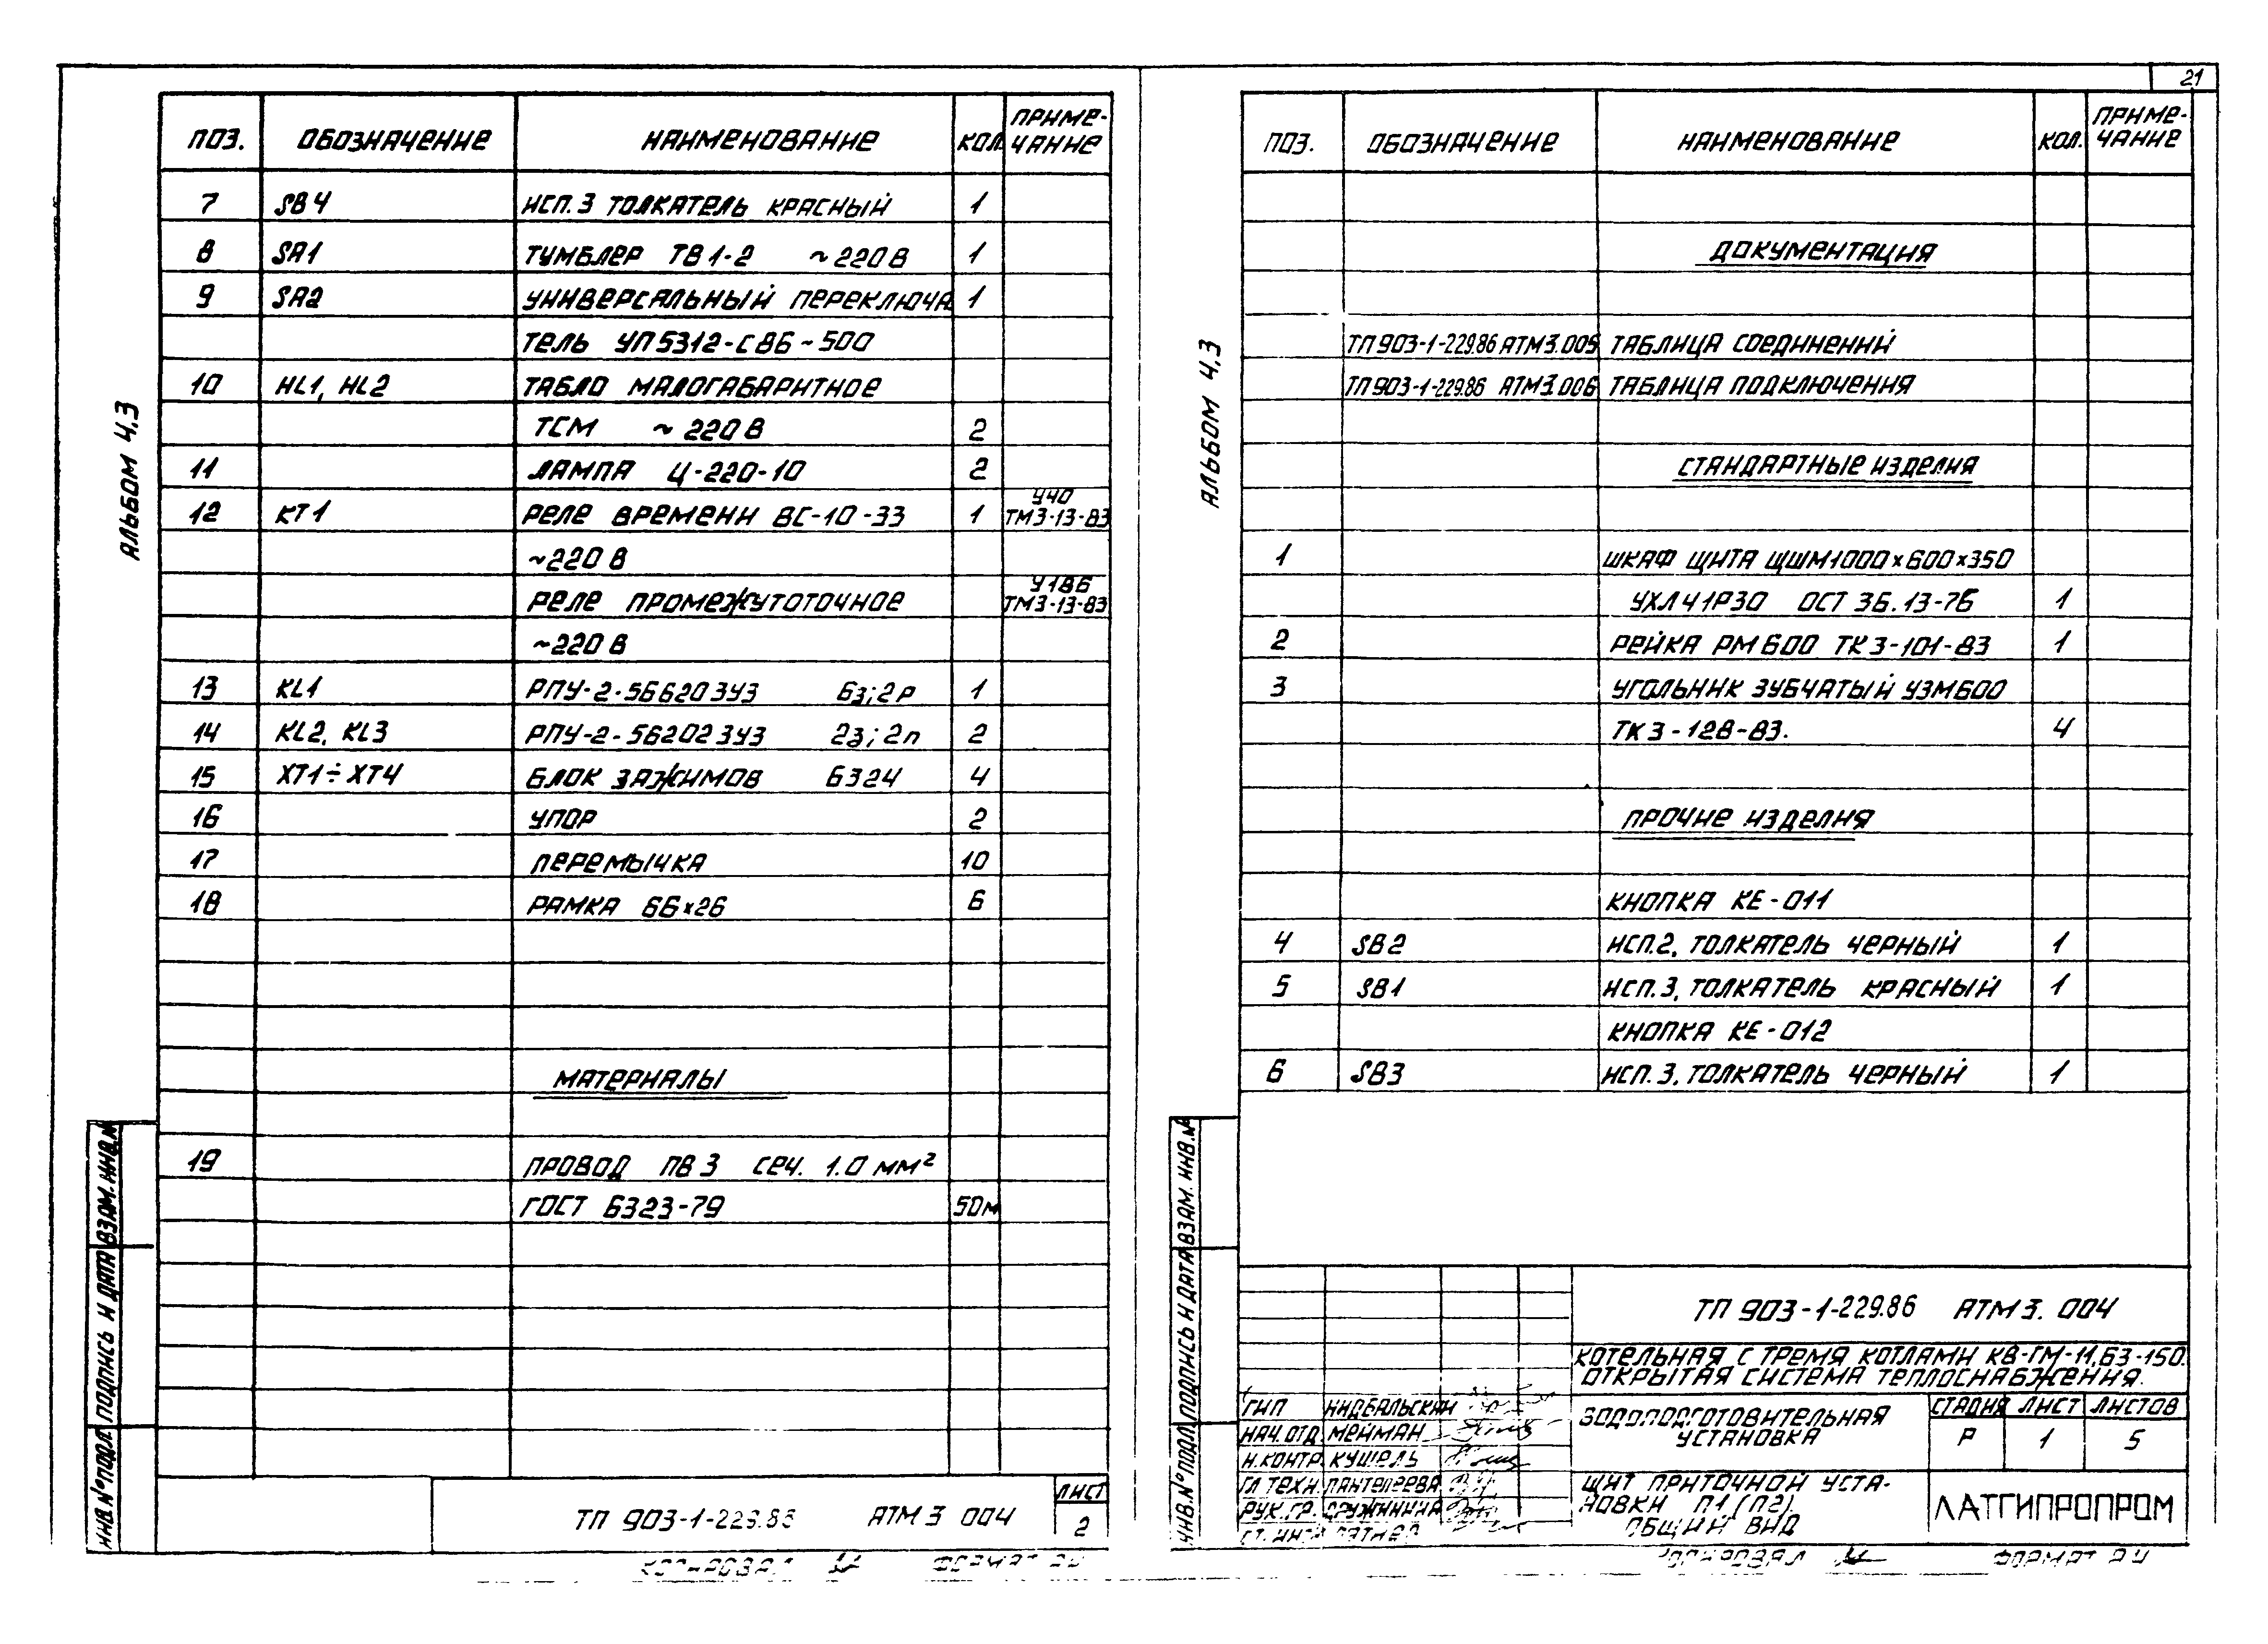 21
АЛЬБОМ 4.3
ПОЗ. ОБОЗНАЧЕНИЕ НАИМЕНОВАНИЕ КОЛ. ПРИМЕ-
ЧАНИЕ
7 SB4 ИСП. 3 ТОЛКАТЕЛЬ КРАСНЫЙ 1
8 SA1 ТУМБЛЕР ТВ1-2 ~220В 1
9 SA2 УНИВЕРСАЛЬНЫЙ ПЕРЕКЛЮЧА 1
ТЕЛЬ УП5312-С86 ~500
10 HL1, HL2 ТАБЛО МАЛОГАБАРИТНОЕ
ТСМ ~220В 2
11 ЛАМПА Ц-220-10 2
12 KT1 РЕЛЕ ВРЕМЕНИ ВС-10-33 1 У40
ТМ3-13-83
~220 В
РЕЛЕ ПРОМЕЖУТОТОЧНОЕ У186
ТМ3-13-83
~220 В
13 KL1 РПУ-2-566203У3 6з; 2р 1
14 KL2, KL3 РПУ-2-562023У3 2з; 2п 2
15 XT1÷XT4 БЛОК ЗАЖИМОВ Б324 4
16 УПОР 2
17 ПЕРЕМЫЧКА 10
18 РАМКА 66×26 6
МАТЕРИАЛЫ
19 ПРОВОД ПВ3 СЕЧ. 1.0 ММ²
ГОСТ 6323-79 50М
ВЗАМ. ИНВ.№
ПОДПИСЬ И ДАТА
ИНВ.№ ПОДЛ
ТП 903-1-229.86 АТМ3 004
ЛИСТ
2
КОПИРОВАЛ ФОРМАТ А4
АЛЬБОМ 4.3
ПОЗ. ОБОЗНАЧЕНИЕ НАИМЕНОВАНИЕ КОЛ. ПРИМЕ-
ЧАНИЕ
ДОКУМЕНТАЦИЯ
ТП 903-1-229.86 АТМ3.005 ТАБЛИЦА СОЕДИНЕНИЙ
ТП 903-1-229.86 АТМ3.006 ТАБЛИЦА ПОДКЛЮЧЕНИЯ
СТАНДАРТНЫЕ ИЗДЕЛИЯ
1 ШКАФ ЩИТА ЩШМ1000×600×350
УХЛ41Р30 ОСТ 36.13-76 1
2 РЕЙКА РМ600 ТК3-101-83 1
3 УГОЛЬНИК ЗУБЧАТЫЙ УЗМ600
ТК3-128-83. 4
ПРОЧИЕ ИЗДЕЛИЯ
КНОПКА КЕ-011
4 SB2 ИСП.2, ТОЛКАТЕЛЬ ЧЕРНЫЙ 1
5 SB1 ИСП.3, ТОЛКАТЕЛЬ КРАСНЫЙ 1
КНОПКА КЕ-012
6 SB3 ИСП.3, ТОЛКАТЕЛЬ ЧЕРНЫЙ 1
ВЗАМ. ИНВ.№
ПОДПИСЬ И ДАТА
ИНВ.№ ПОДЛ
ТП 903-1-229.86 АТМ3. 004
КОТЕЛЬНАЯ С ТРЕМЯ КОТЛАМИ КВ-ГМ-11,63-150.
ОТКРЫТАЯ СИСТЕМА ТЕПЛОСНАБЖЕНИЯ.
ГИП НИДБАЛЬСКАЯ
НАЧ.ОТД. МЕЙМАН
Н.КОНТР. КУШЕЛЬ
ГЛ ТЕХН. ПАНТЕЛЕЕВА
РУК.ГР. ДРУЖИНИНА
СТ. ИНЖ
ВОДОПОДГОТОВИТЕЛЬНАЯ
УСТАНОВКА
СТАДИЯ ЛИСТ ЛИСТОВ
Р 1 5
ЩИТ ПРИТОЧНОЙ УСТА-
НОВКИ П1 (П2).
ОБЩИЙ ВИД
ЛАТГИПРОПРОМ
КОПИРОВАЛ ФОРМАТ А4